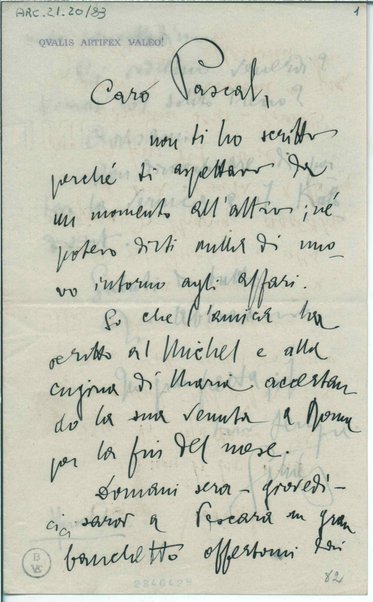 ARC.21.20/83
1
QVALIS ARTIFEX VALEO!
Caro Pascal,
non ti ho scritto
perché ti aspettavo da
un momento all'altro; né
potevo dirti nulla di nuo-
vo intorno agli affari.
So che l'amica ha
scritto al Michel e alla
cugina di Maria accertan
do la sua venuta a Roma
per la fin del mese.
Domani sera - giovedì -
ci sarà a Pescara un gran
banchetto offertomi dai
B
VE
2340429
82